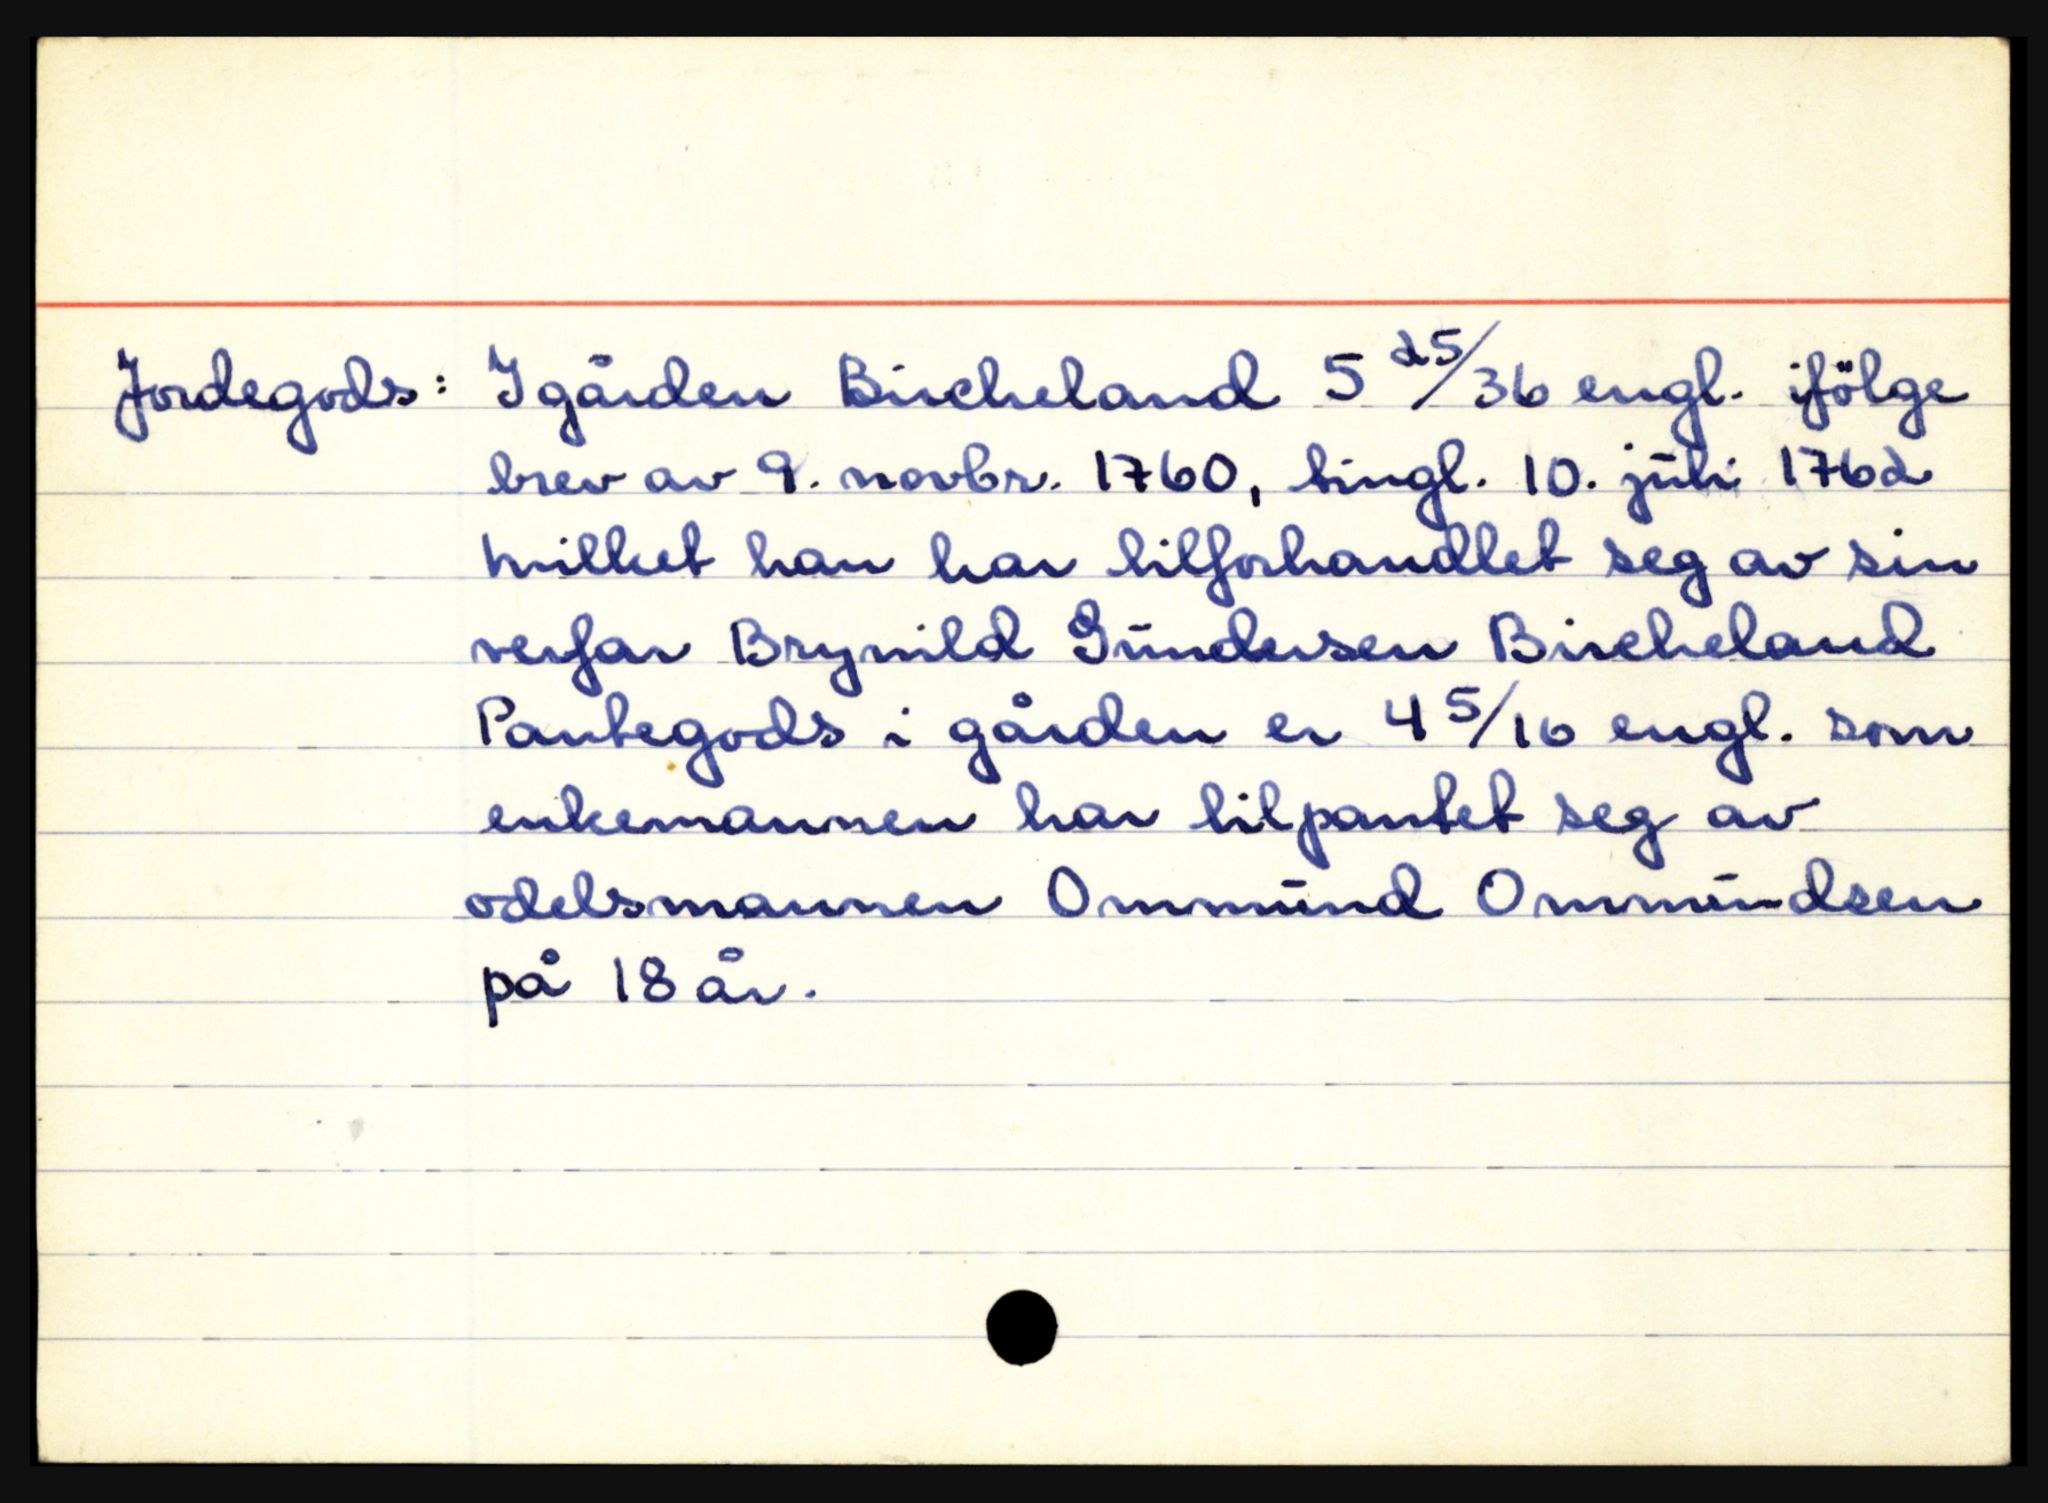 Jordegods: I gården Bircheland 5 25/36 engl. ifölge
brev av 9. novbr. 1760, tingl. 10. juli 1762
hvilket han har tilforhandlet seg av sin
verfar Brynild Gundersen Bircheland
Pantegods i gården er 4 5/16 engl. som
enkemannen har tilpantet seg av
odelsmannen Ommund Ommundsen
på 18 år.